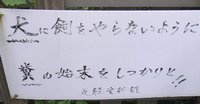 犬に餌をやらないように
糞の始末をしっかりと!!